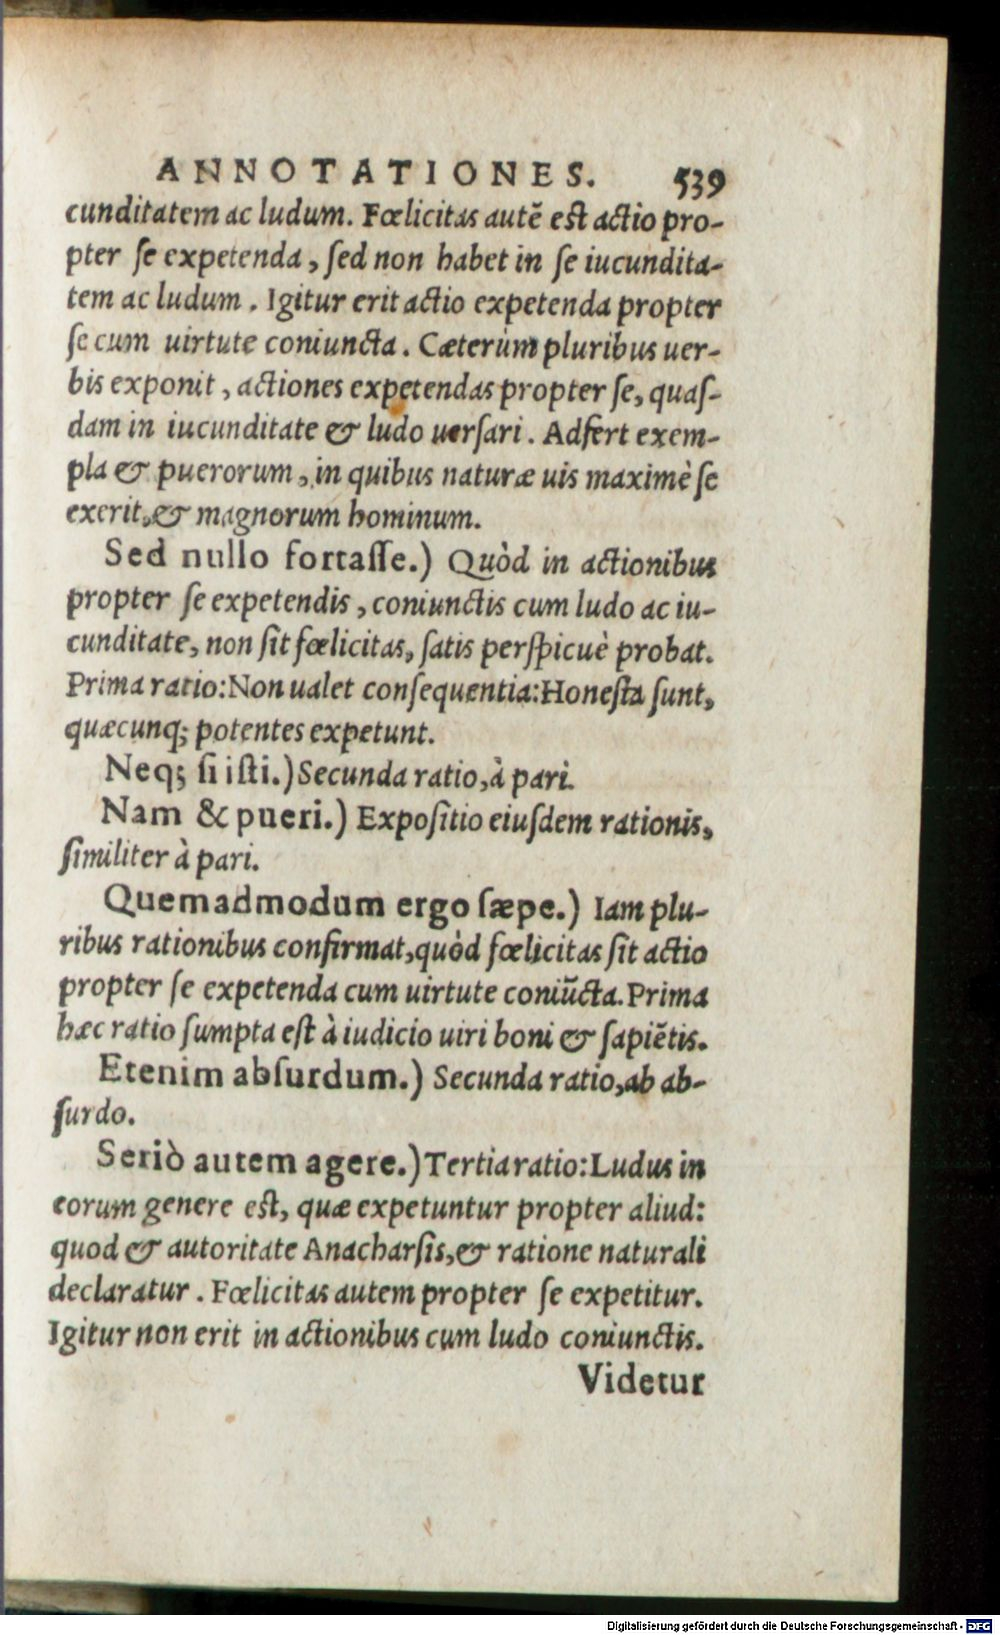 ANNOTATIONES. 539
cunditatem ac ludum. Fœlicitas autẽ est actio pro-
pter ſe expetenda, ſed non habet in ſe iucundita-
tem ac ludum. Igitur erit actio expetenda propter
ſe cum uirtute coniuncta. Cæterùm pluribus uer-
bis exponit, actiones expetendas propter ſe, quaſ-
dam in iucunditate & ludo uerſari. Adfert exem-
pla & puerorum, in quibus naturæ uis maximè ſe
exerit, & magnorum hominum.
Sed nullo fortaſſe.) Quòd in actionibus
propter ſe expetendis, coniunctis cum ludo ac iu-
cunditate, non ſit fœlicitas, ſatis perſpicuè probat.
Prima ratio: Non ualet conſequentia: Honeſta ſunt,
quæcunq; potentes expetunt.
Neq; ſi iſti.) Secunda ratio, à pari.
Nam & pueri.) Expoſitio eiuſdem rationis,
ſimiliter à pari.
Quemadmodum ergo ſæpe.) Iam plu-
ribus rationibus confirmat, quòd fœlicitas ſit actio
propter ſe expetenda cum uirtute coniũcta. Prima
hæc ratio ſumpta eſt à iudicio uiri boni & ſapiẽtis.
Etenim abſurdum.) Secunda ratio, ab ab-
ſurdo.
Seriò autem agere.) Tertia ratio: Ludus in
eorum genere eſt, quæ expetuntur propter aliud:
quod & autoritate Anacharſis, & ratione naturali
declaratur. Fœlicitas autem propter ſe expetitur.
Igitur non erit in actionibus cum ludo coniunctis.
Videtur
Digitalisierung gefördert durch die Deutsche Forschungsgemeinschaft - DFG